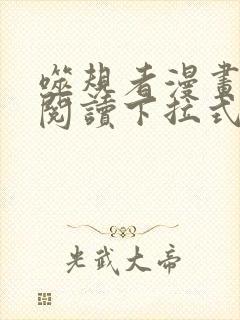 噬規者漫畫
閱讀下拉式
光武大帝